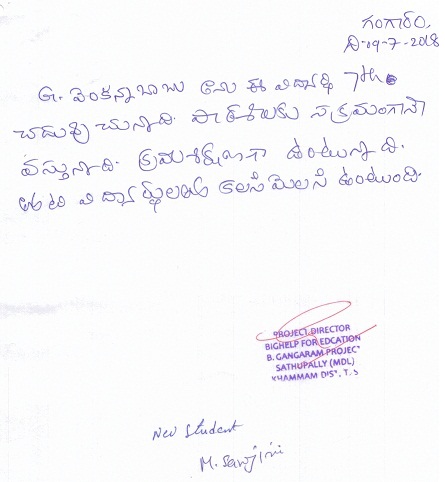 గంగారం,
ది-09-7-2018
G. వెంకన్నాబాబు అను ఈ విద్యార్థి 7th
చదువు చున్నాది. పాఠశాలకు సక్రమంగానే
వస్తున్నాది. క్రమశిక్షణగా ఉంటున్నాది.
తోటి విద్యార్థులతో కలసి మెలసి ఉంటుంది.
PROJECT DIRECTOR
BIGHELP FOR EDCATION
B. GANGARAM PROJEC
SATHUPALLY (MDL)
KHAMMAM DIST, T.S
New Student
M. Sarojini